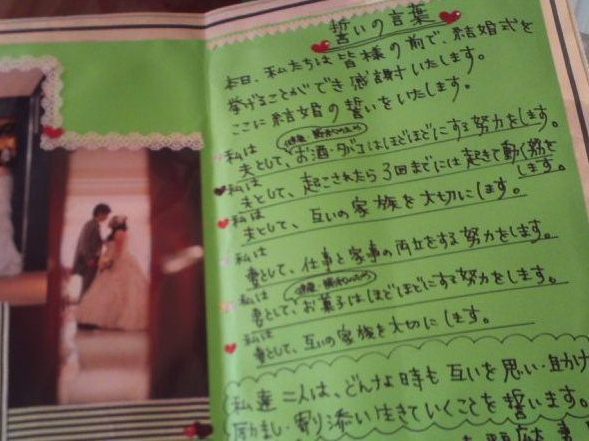 誓いの言葉
本日、私たちは皆様の前で、結婚式を
挙げることができ感謝致します。
ここに結婚の誓いをいたします。
私は
健康、節約のため
夫として、お酒・タバコはほどほどにする努力をします。
私は
夫として、起こされたら3回までには起きて動く努力を
します。
私は
夫として、互いの家族を大切にします。
私は
妻として、仕事と家事の両立をする努力をします。
私は
健康、節約のため
妻として、お菓子はほどほどにする努力をします。
私は
妻として、互いの家族を大切にします。
私達二人は、どんな時も互いを思い・助け
励まし・寄り添い生きていくことを誓います。